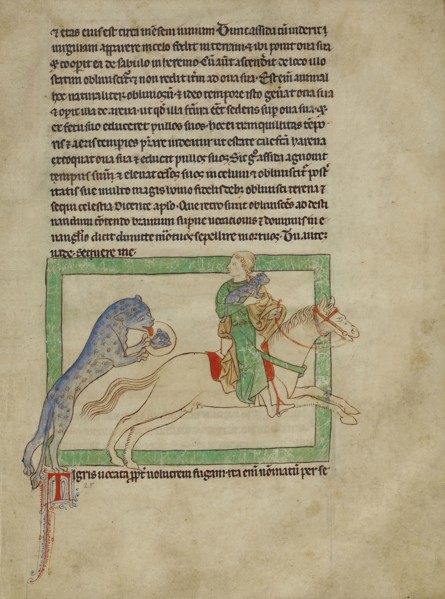 & etas eius est circa mensem iunium. Tunc assida cū uiderit
uirgilias apparere in celo fodit in terram & ibi ponit oua sua
& cooperit ea de sabulo in heremo. Cū aūt ascendit de loco illo
statim obliuiscit & non redit itm ad oua sua. Est enī animal
hoc naturaliter obliuiosum & ideo tempore isto generat oua sua
& operit illa de arena ut
& fetus suo educeret pullos suos. hoc ei tranquillitas
& aeris temperies uidentur ut estate calefacta harena
excoquat oua sua & educit pullos suos. Si g assida agnoscit
tempus suum & eleuat oculos suos in celum & obliuiscit
tatis sue multo magis homo fidelis debet obliuisci terena &
sequi celestia. Dicente aplo. Que retro sunt obliuiscens ad desti
nandum contendo brauium supne uocationis & dominus in e
uangelio dicit dimitte mortuos sepellire mortuos. Tu autē
uade & sequere me.
Tigris uocata ppt uolucrem fugam. ita enī nominatur per se